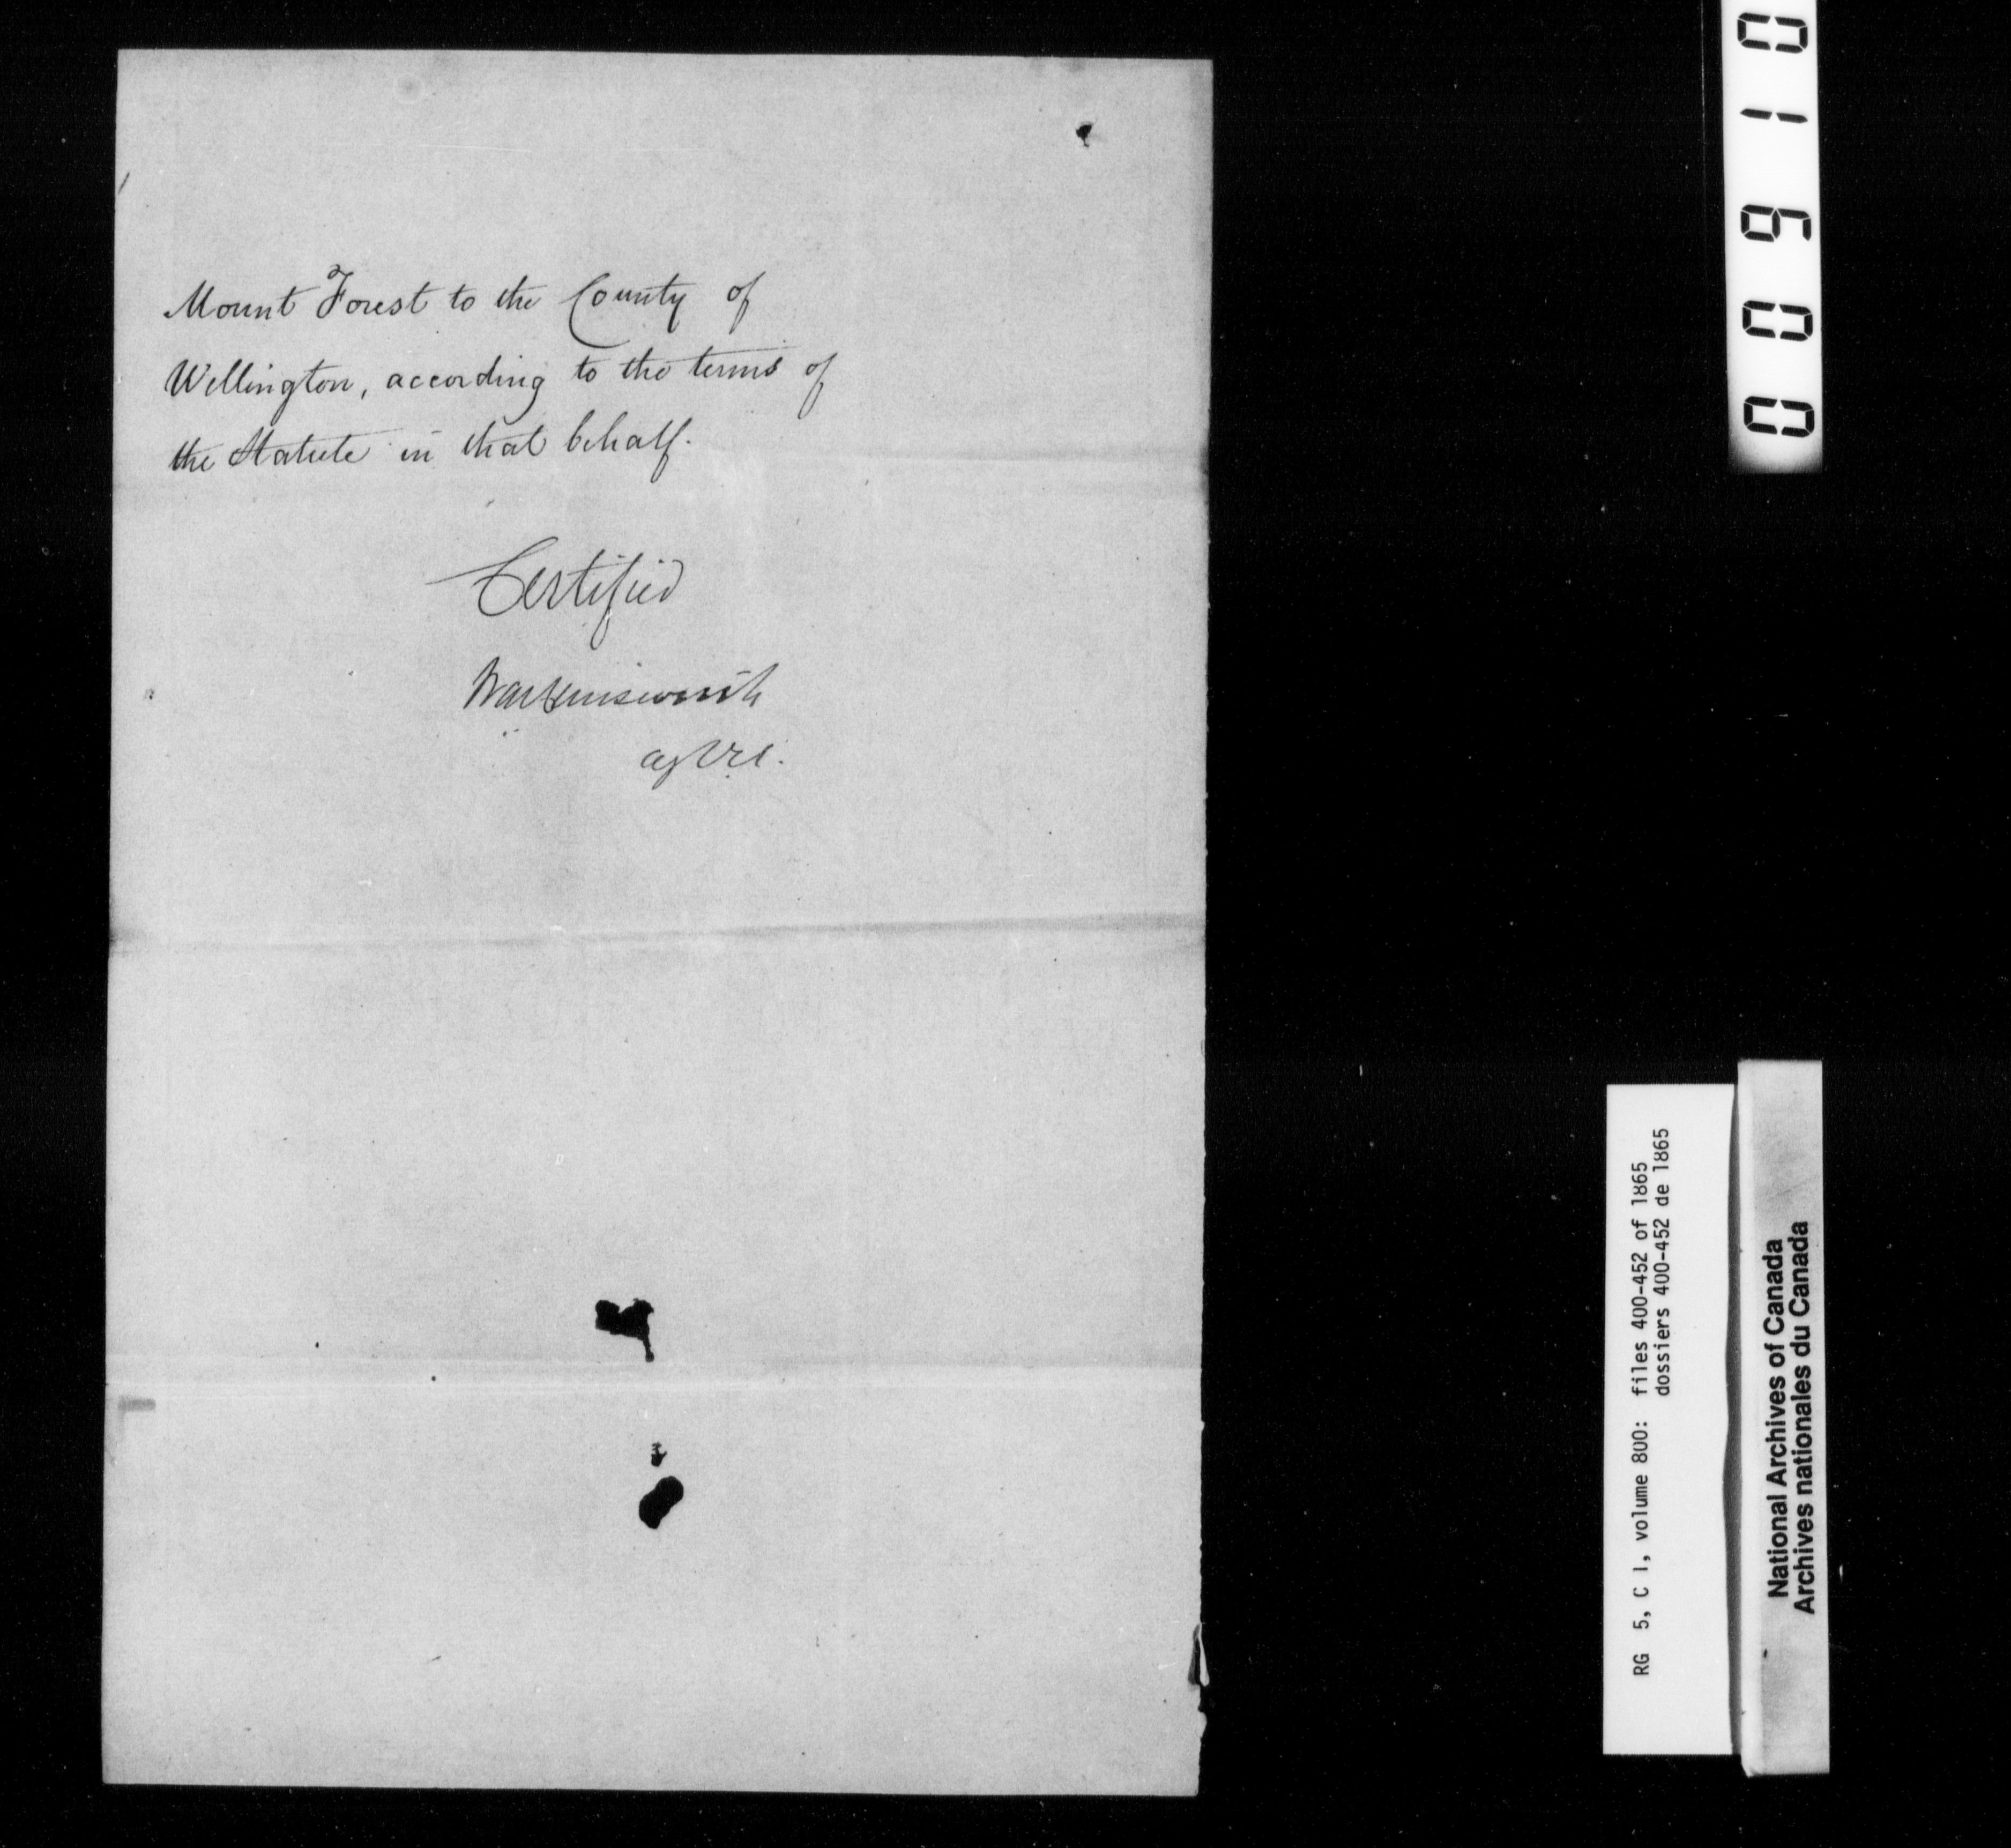 Mount Forest to the County of
Wellington, according to the terms of
the Statute in that behalf.
Certified
00910
RG 5, C 1, volume 800: files 400-452 of 1865
dossiers 400-452 de 1865
National Archives of Canada
Archives nationales du Canada